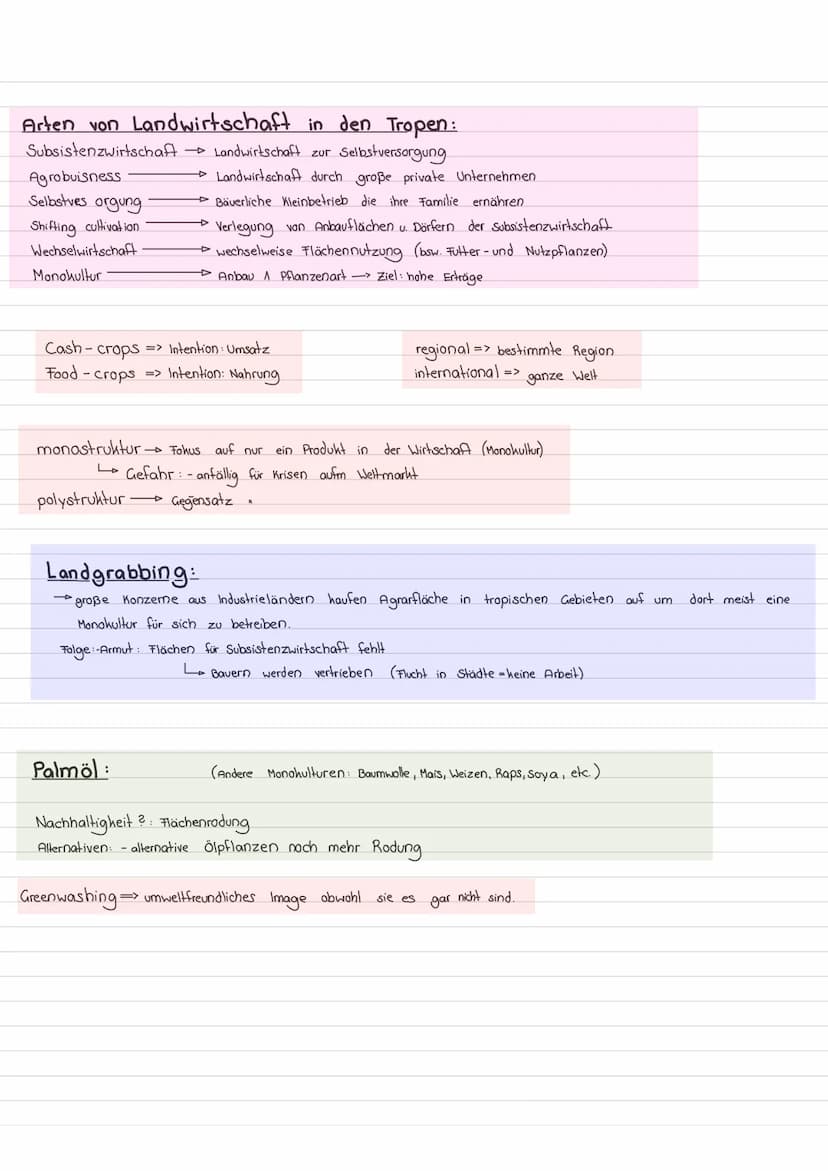 Arten von Landwirtschaft in den Tropen:
Subsistenzwirtschaft → Landwirtschaft zur Selbstversorgung
Agrobuisness → Landwirtschaft durch große private Unternehmen
Selbstves orgung → Bäuerliche Kleinbetrieb die ihre Familie ernähren
Shifting cultivation → Verlegung von Anbauflächen u. Dörfern der Subsistenzwirtschaft
Wechselwirtschaft → wechselweise Flächennutzung (bsw. Futter- und Nutzpflanzen)
Monokultur → Anbau 1 Pflanzenart → Ziel: hohe Erträge
Cash-crops => Intention: Umsatz
Food-crops => Intention: Nahrung
regional => bestimmte Region
international => ganze Welt
monostruktur → Fokus auf nur ein Produkt in der Wirtschaft (Monokultur)
↳ Gefahr: - anfällig für Krisen aufm Weltmarkt
polystruktur → Gegensatz "
Landgrabbing:
→ große Konzerne aus Industrieländern kaufen Agrarfläche in tropischen Gebieten auf um dort meist eine
Monokultur für sich zu betreiben.
Folge: -Armut: Flächen für Subsistenzwirtschaft fehlt
↳ Bauern werden vertrieben (Flucht in Städte = keine Arbeit)
Palmöl: (Andere Monokulturen: Baumwolle, Mais, Weizen, Raps, Soya, etc.)
Nachhaltigkeit?: Flächenrodung
Alternativen: - alternative Ölpflanzen noch mehr Rodung
Greenwashing => umweltfreundliches Image obwohl sie es gar nicht sind.